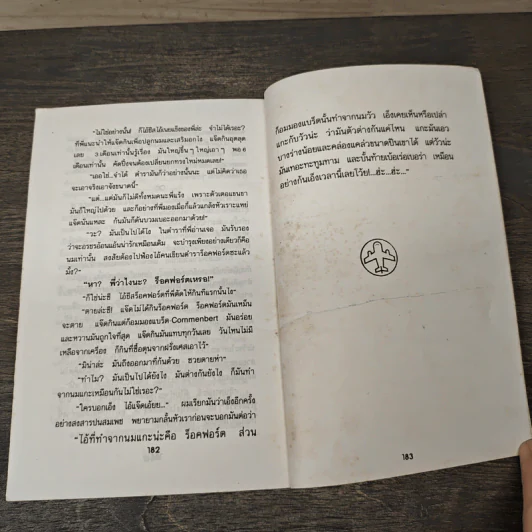 "ไม่ใช่อย่างนั้น! ก็ไอ้ชีสไอ้เนยแข็งของพี่ล่ะ จำไม่ได้เรอะ?
ที่พี่แนะนำให้แจ๊ดกินเพื่อปลูกนมและเสริมอกไง แจ๊ดกินอุตลุด
เลย 3 เดือนเท่านั้นรู้เรื่อง มันใหญ่ขึ้น ๆ ใหญ่เอา ๆ พอ 6
เดือนเท่านั้น คัดซี่จนต้องเปลี่ยนยกทรงใหม่หมดเลย!"
"เออใช่..จำได้ ตำรามันก็ว่าอย่างนั้นนะ แต่ไม่คิดว่าเธอ
จะเอาจริงเอาจังขนาดนี้"
"แต่...แต่มันก็ไม่ดีทั้งหมดนะพี่แร้ง เพราะตัวเตอแขนขา
มันก็ใหญ่ไปด้วย และก็อย่างที่พี่มองเมื่อกี้แล้วแกล้งหัวเราะแหย่
แจ๊ดนั่นแหละ ก้นมันก็ดันบวมเบอะออกมาด้วย!"
"วะ? มันเป็นไปได้ไง ในตำราที่พี่อ่านเจอ มันรับรอง
ว่าจะอรชรอ้อนแอ้นน่ารักเหมือนเดิม จะบำรุงเพียงอย่างเดียวก็คือ
นมเท่านั้น สงสัยต้องไปฟ้องไอ้คนเขียนตำราร็อคฟอร์ตซะแล้ว
มั้ง?"
"หา? พี่ว่าไงนะ? ร็อคฟอร์ตเหรอ!"
"ก็ใช่น่ะซี ไอ้ชีสร็อคฟอร์ตที่พี่ตัดให้กินที่แรกนั่นไง"
"ตายล่ะซี! แจ๊ดไม่ได้กินร็อคฟอร์ต ร็อคฟอร์ตมันเหม็น
จะตาย แจ๊ดกินแต่ก็อมมองแบร็ต Commenbert มันอร่อย
และหวานมันถูกใจที่สุด แจ๊ดกินมันแทบทุกวันเลย วันไหนไม่มี
เหลือจากเครื่อง ก็กินที่ซื้อตุนจากฝรั่งเศสเอาไว้"
"มิน่าล่ะ มันถึงออกมาที่ก้นด้วย ซวยตายห่า"
"ทำไม? มันเป็นไปได้ยังไง มันต่างกันยังไง ก็มันทำ
จากนมแกะเหมือนกันไม่ใช่เรอะ?"
"ใครบอกเอ็ง ไอ้แจ๊ดเอ้ยย..." ผมเรียกมันว่าเอ็งอีกครั้ง
อย่างสงสารปนสมเพช พยายามกลั้นหัวเราก่อนจะบอกมันต่อว่า
"ไอ้ที่ทำจากนมแกะน่ะคือ ร็อคฟอร์ต ส่วน
182
ก็อมมองแบร็ตนั้นทำจากนมวัว เอ็งเคยเห็นหรือเปล่า
แกะกับวัวน่ะ ว่ามันตัวต่างกันแค่ไหน แกะมันเอว
บางร่างน้อยและคล่องแคล่วขนาดปีนเขาได้ แต่วัวน่ะ
มันเทอะทะทุมทาม และบั้นท้ายเบ้อเร่อเบอร่า เหมือน
อย่างก้นเอ็งเวลานี้เลยไว้ย!...ฮ่ะ...ฮ่ะ..."
183